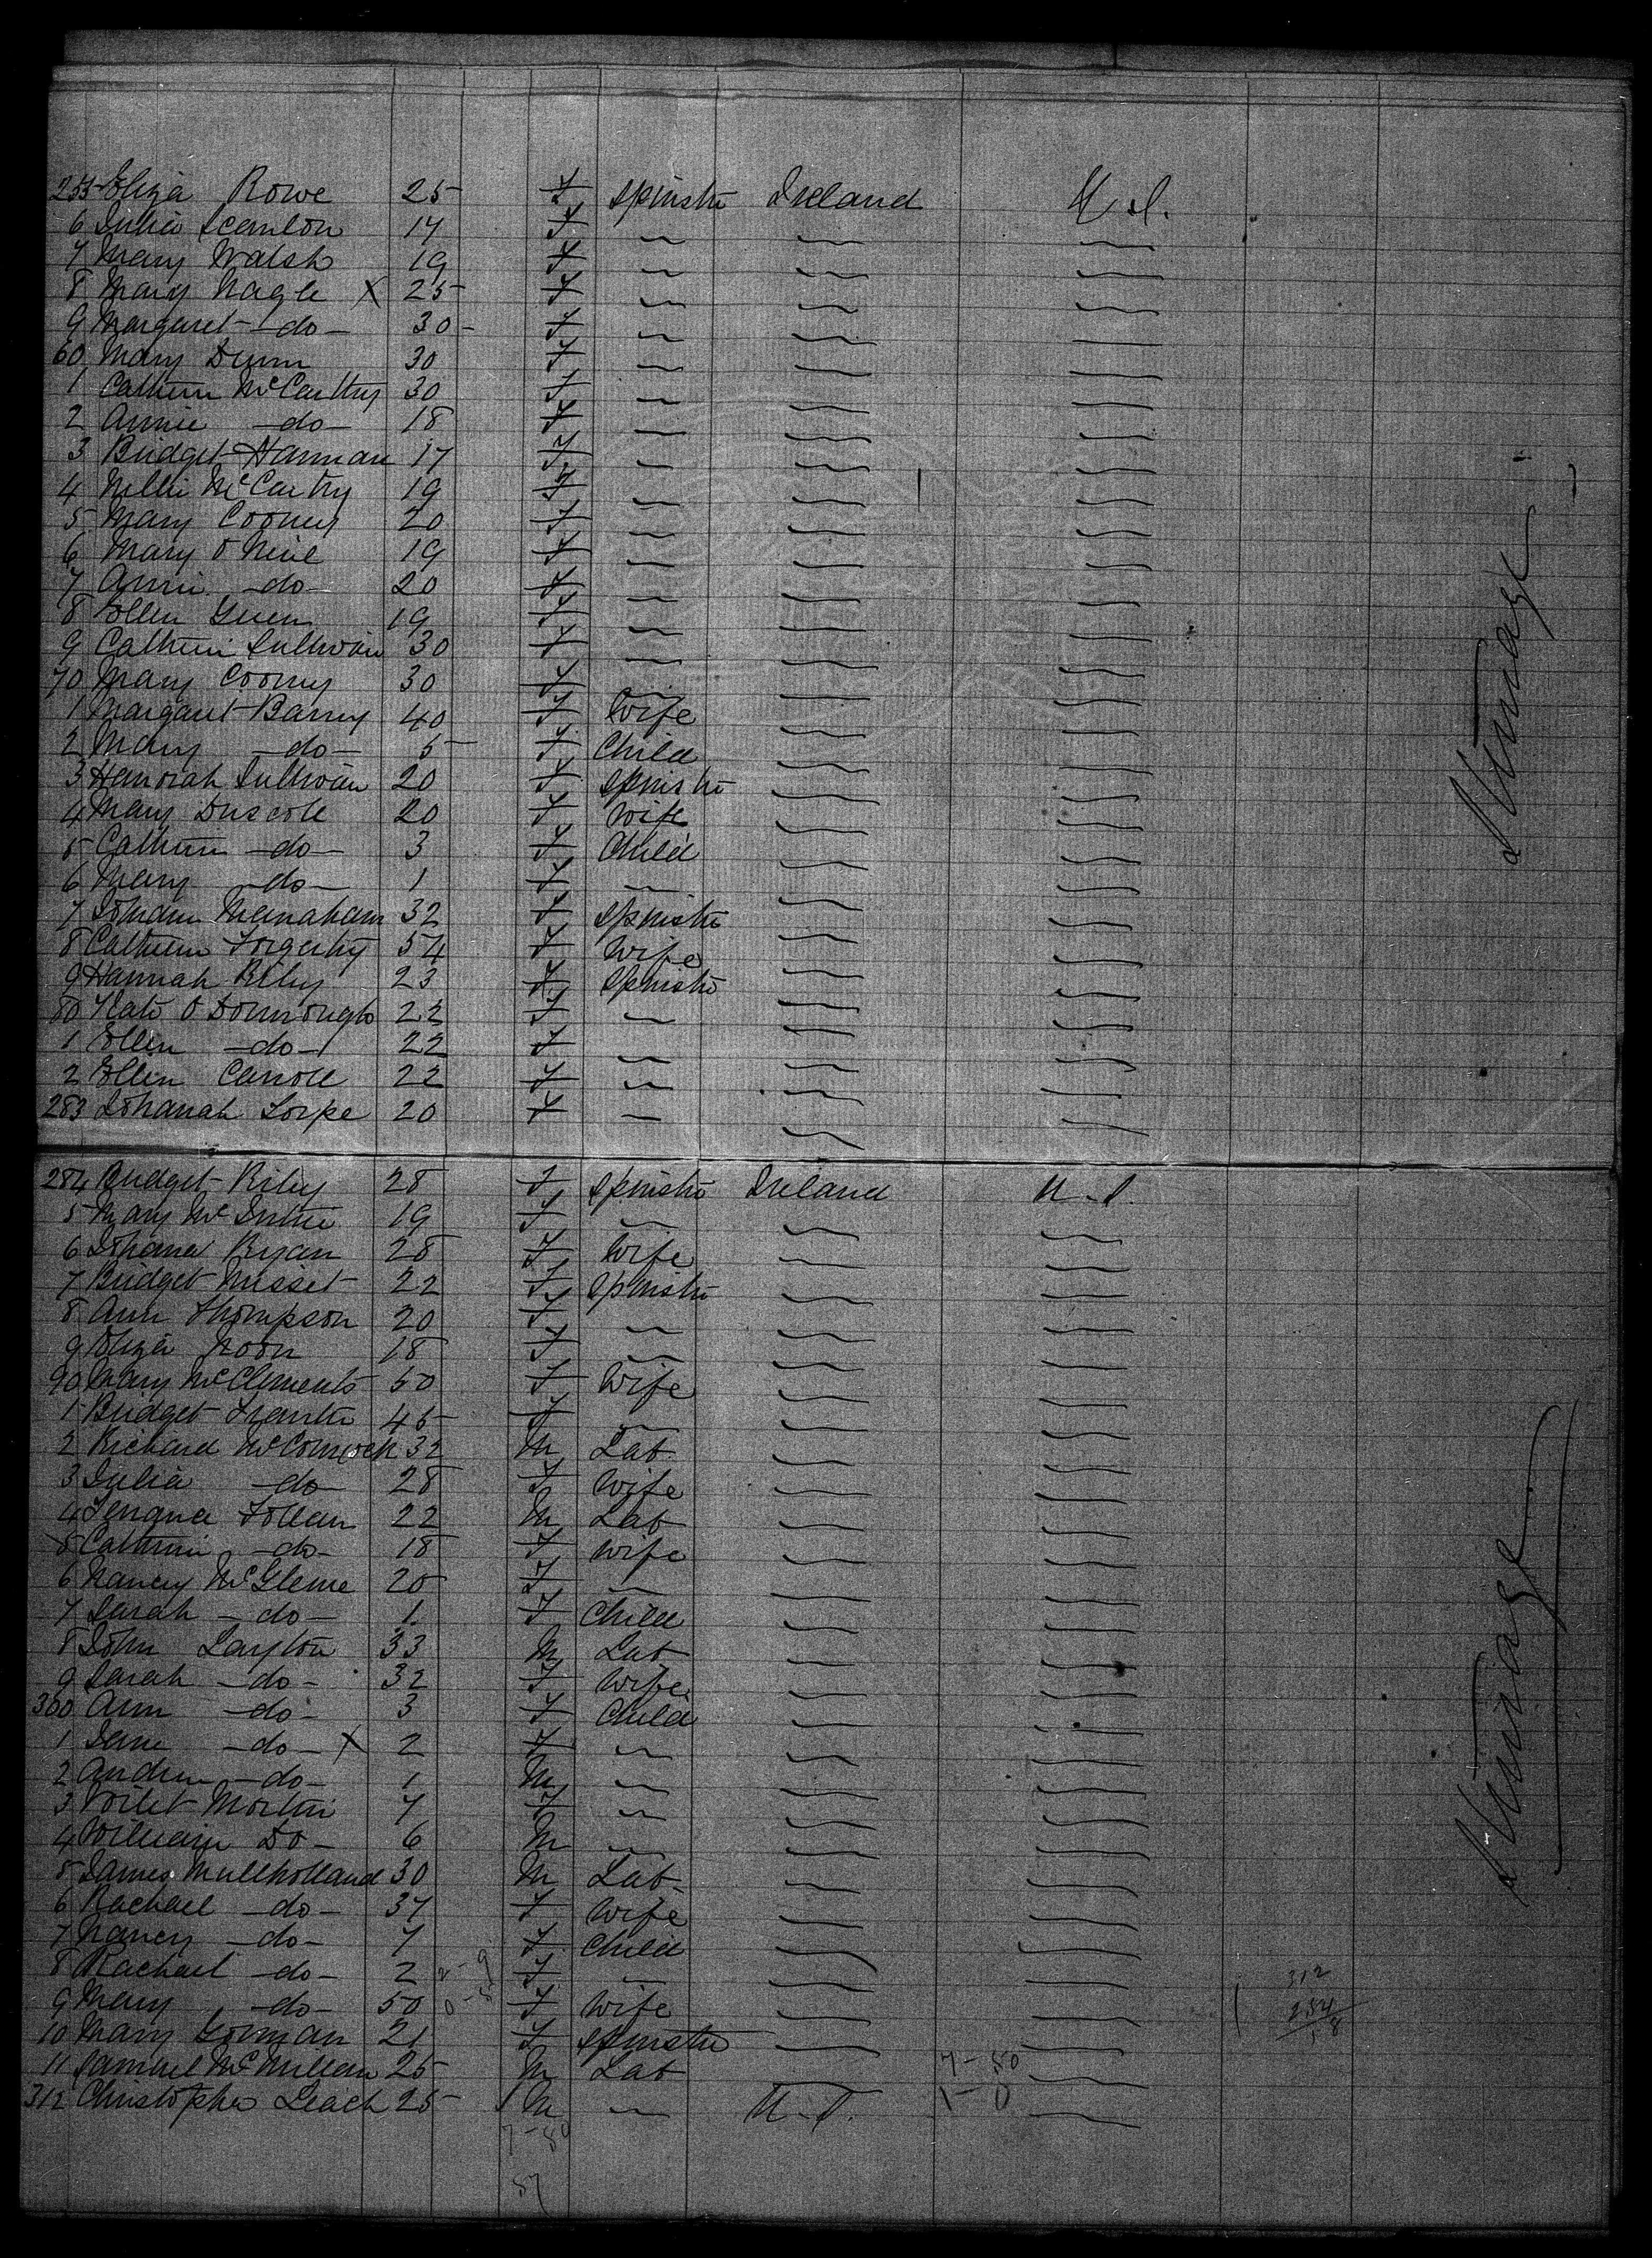 255 Eliza Rowe 25 F Spinster Ireland U.S.
6 Julia Scanlon 17 F " " "
7 Mary Walsh 19 F " " "
8 Mary Nagle X 25 F " " "
9 Margaret -do- 30 F " " "
60 Mary Dunn 30 F " " "
1 Catherin McCarthy 30 F " " "
2 Annie -do- 18 F " " "
3 Bridget Hannan 17 F " " "
4 Nellie McCarthy 19 F " " "
5 Mary Cooney 20 F " " "
6 Mary O Neil 19 F " " "
7 Annie -do- 20 F " " "
8 Ellen 19 F " " "
9 Catherin Sullivan 30 F " " "
70 Mary Cooney 30 F " " "
1 Margaret Barry 40 F Wife " "
2 Mary -do- 5 F Child " "
3 Hanorah Sullivan 20 F Spinster " "
4 Mary Driscole 20 F Wife " "
5 Catherin -do- 3 F Child " "
6 Mary -do- 1 F " " "
7 Johann 32 F Spinster " "
8 Catherin Fogarty 54 F Wife " "
9 Hannah Riley 23 F Spinster " "
80 Kate O Donnough 22 F " " "
1 Ellen -do- 22 F " " "
2 Ellen Carroll 22 F " " "
283 Johanah 20 F " " "
Steerage
284 Bridget Riley 28 F Spinster Ireland U.S.
5 Mary McIntire 19 F " " "
6 Johana Ryan 28 F Wife " "
7 Bridget Misset 22 F Spinster " "
8 Ann Thompson 20 F " " "
9 Eliza Noon 18 F " " "
90 Mary McClements 50 F Wife " "
1 Bridget 45 F " " "
2 Richard McCormock 32 M Lab " "
3 Julia -do- 28 F Wife " "
4 22 M Lab " "
5 Catherin -do- 18 F Wife " "
6 Nancy McGlene 20 F " " "
7 Sarah -do- 1 F Child " "
8 John Layton 33 M Lab " "
9 Sarah -do- 32 F Wife " "
300 Ann -do- 3 F Child " "
1 Jane -do- X 2 F " " "
2 Andrew -do- 1 M " " "
3 Voilet Martin 7 F " " "
4 William Do- 6 M " " "
5 James Mullholland 30 M Lab " "
6 Rachael -do- 37 F Wife " "
7 Nancy -do- 7 F Child " "
8 Rachael -do- 2 F " " "
9 Mary -do- 50 F Wife " "
10 Mary Gorman 21 F Spinster " "
11 Samuel McMillan 25 M Lab " "
312 Christopher Leach 25 M " U.S. "
Steerage
312
254
58
7-50
1-0